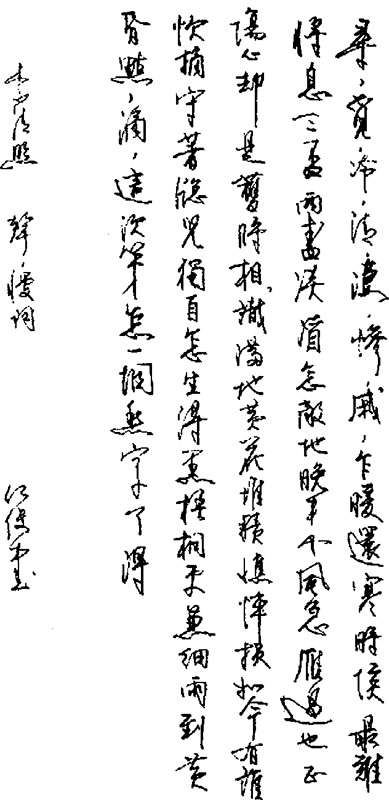 尋、覓、冷、清、淒、慘、戚、乍暖還寒時候最難
將息三盃兩盞淡酒怎敵他晚來風急雁過也正
傷心却是舊時相識滿地黃花堆積憔悴損如今有誰
忺摘守著窗兒獨自怎生得黑梧桐更兼細雨到黃
昏點、滴、這次第怎一個愁字了得
李清照 聲、慢詞 書